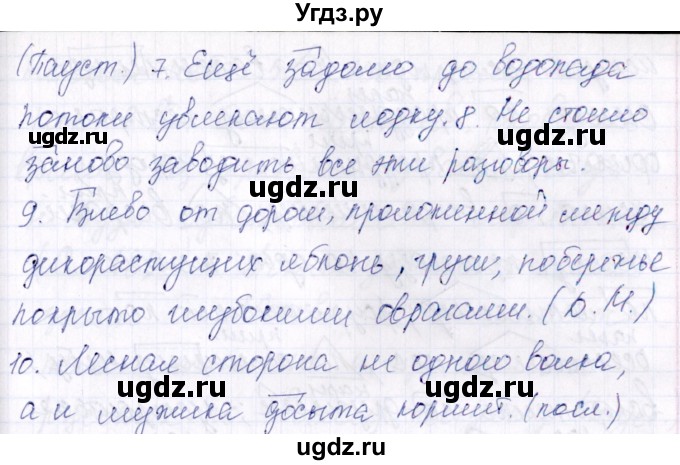 Угдз.ру
(Пауст.) 7. Ещё задолго до водопада
потоки увлекают лодку. 8. Не стоило
заново заводить все эти разговоры.
9. Влево от дороги, проложенной между
дикорастущих яблонь, груш, побережье
покрыто глубокими оврагами. (Д. М.)
10. Лесная сторона не одного волка,
а и мужика досыта кормит. (посл.)
gdz.ru
ugdz.ru
ugdz.ru
ugdz.ru
ugdz.ru
ugdz.ru
ugdz.ru
ugdz.ru
ugdz.ru
ugdz.ru